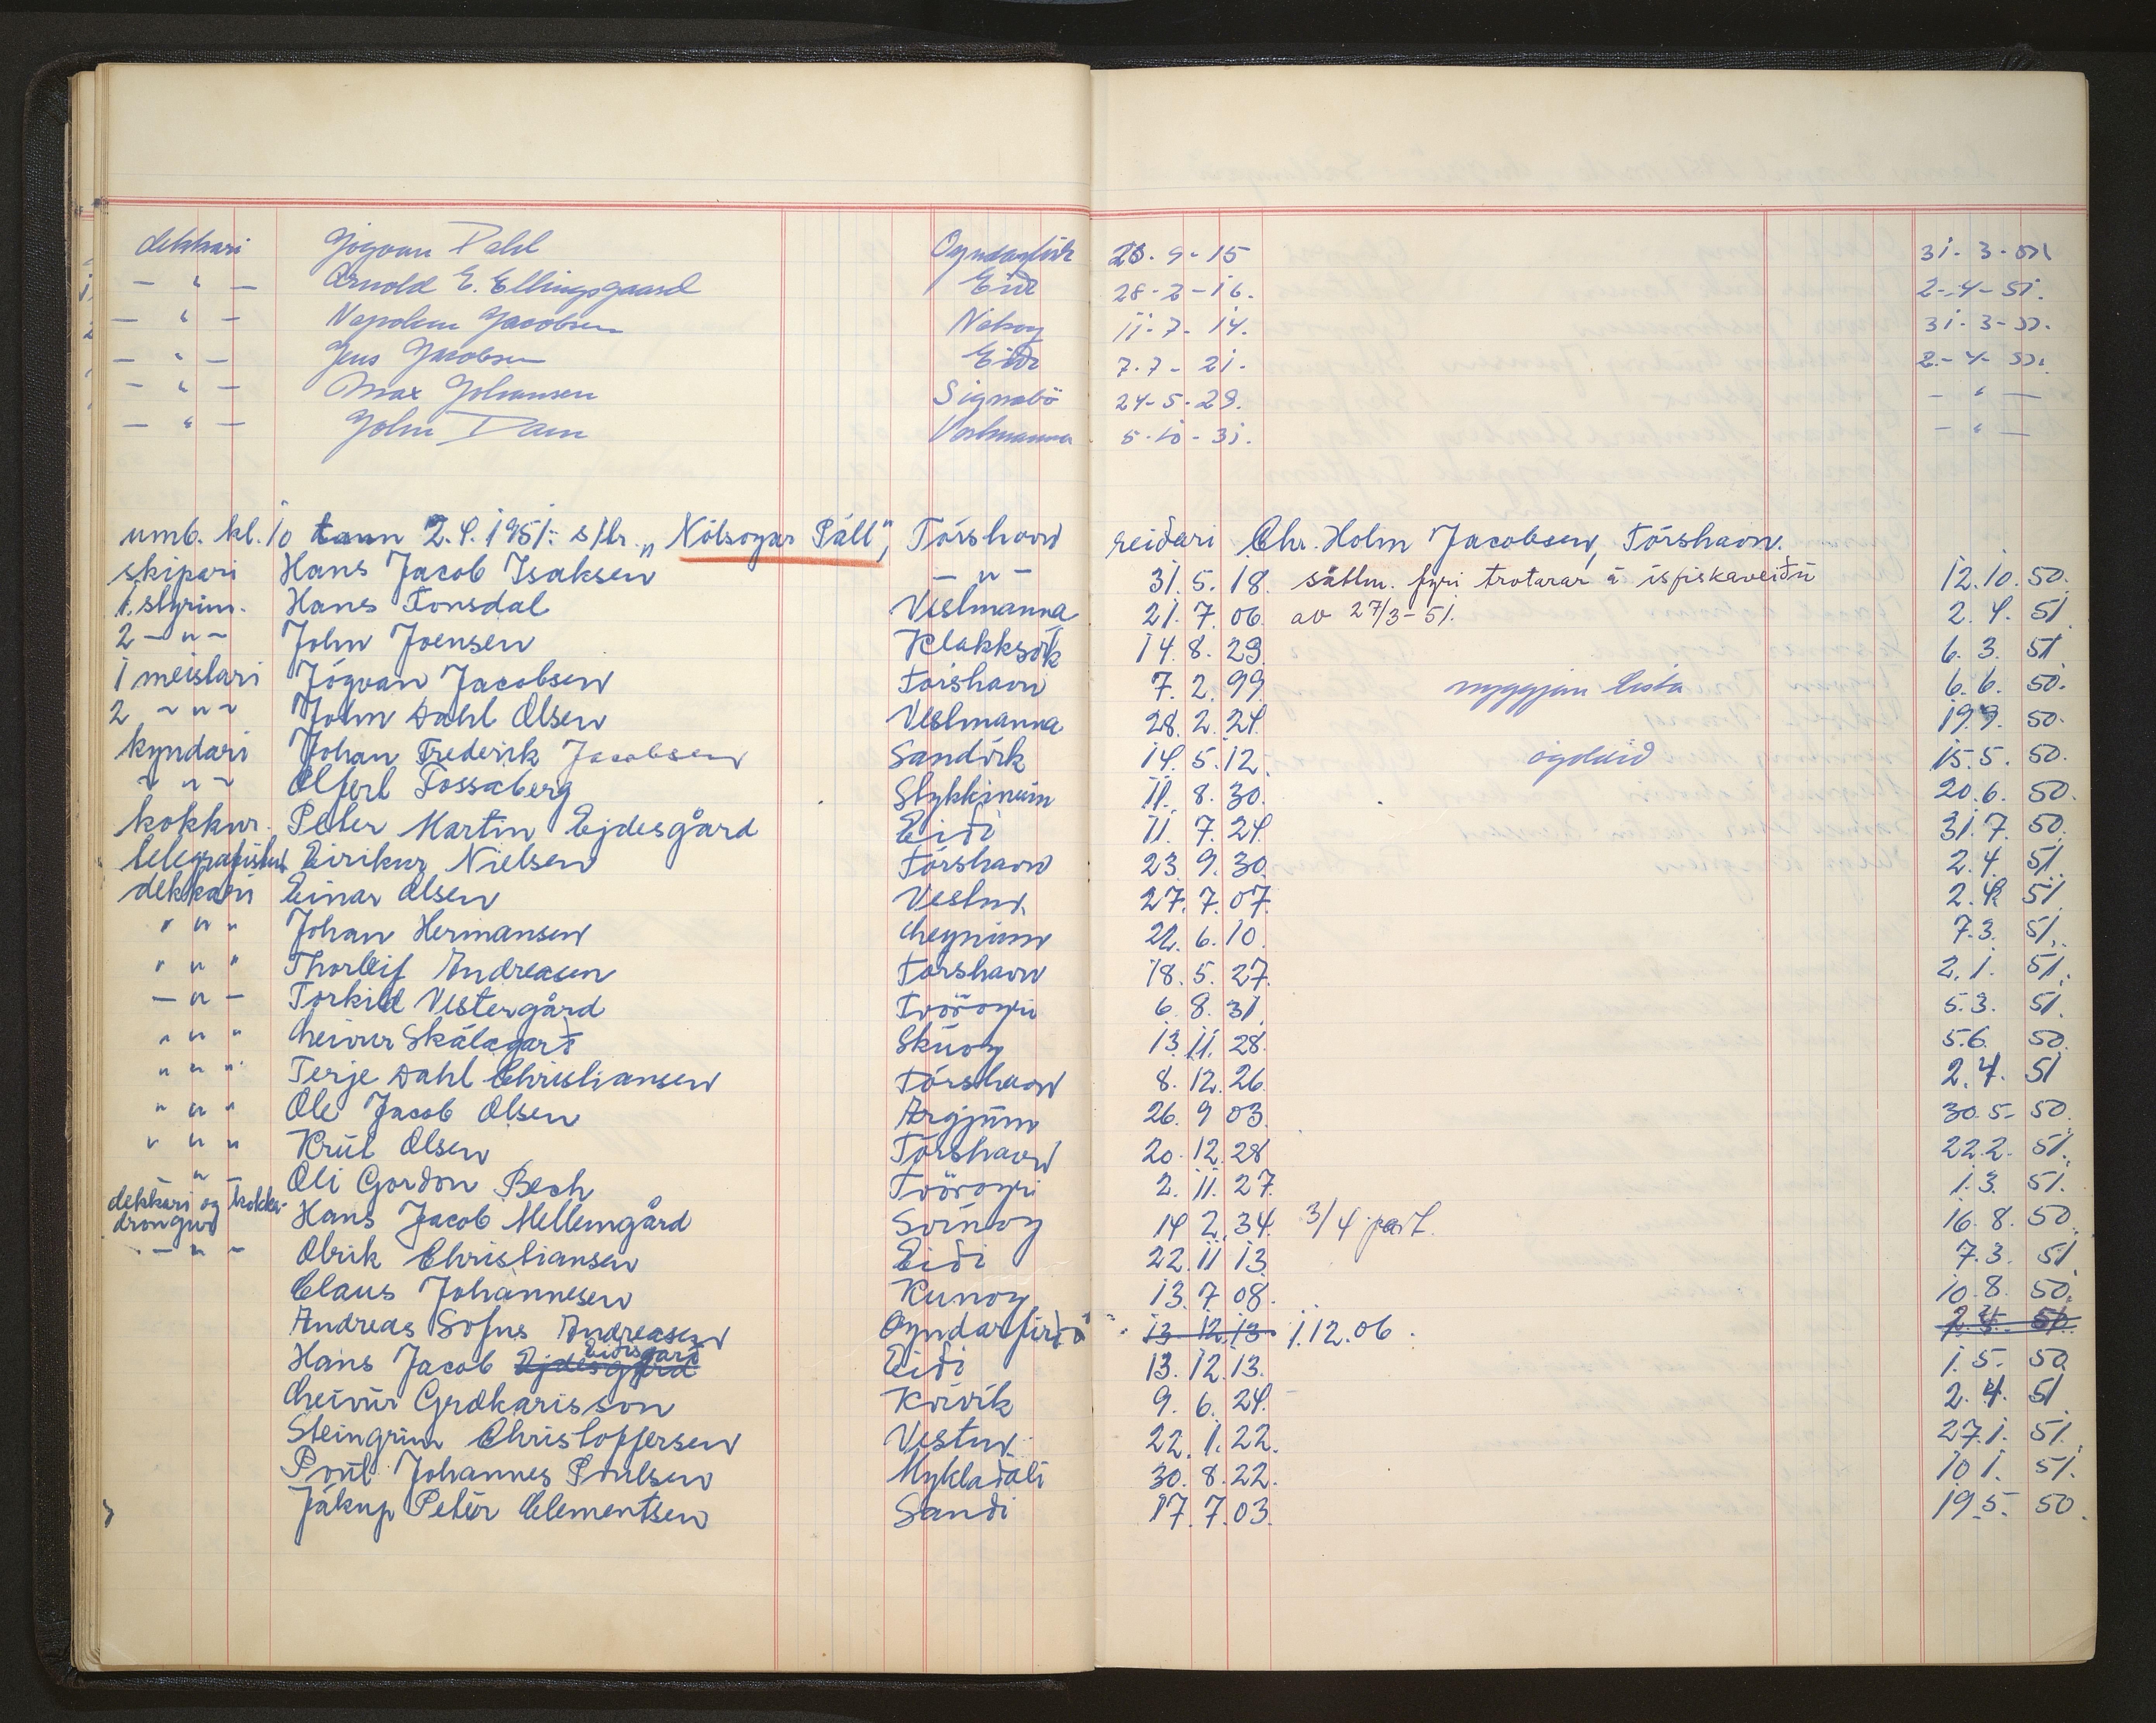 dekkari Jógvan Dahl 20-9-15 31-3-51
— " — Arnold E. Ellingsgaard Eiði 28-2-16. 2-4-51.
— " — Napoleon Jacobsen 11-7-14. 31-3-51.
— " — Jens Jacobsen Eiði 7.7-21. 2-4-51.
— " — Max Johansen Signabö 24-5-29. — " —
— " — John Dam Vestmanna 5-10-31. — " —
umb. kl. 10 tann 2.4.1951: s/tr. „Nólsoyar Páll", Tórshavn reiðari Chr. Holm Jacobsen, Tórshavn.
skipari Hans Jacob Isaksen — " — 31.5.18. sáttm. fyri trolarar á ísfiskaveiðu 12.10.50.
1. stýrim. Hans Tonsdal Vestmanna 21.7.06. av 27/3-51. 2.4.51
2 — " — John Joensen Klakksvík 14.8.29. 6.3.51
1 meistari Jógvan Jacobsen Tórshavn 7.2.99. nyggjan lista 6.6.50.
2 — " — John Dahl Olsen Vestmanna 28.2.24. 19.9.50.
kyndari Johan Frederik Jacobsen Sandvík 14.5.12. ógoldið 15.5.50.
— " — Olfert Fossaberg Stykkinum 11.8.30. 20.6.50.
kokkur. Peter Martin Ejdesgård Eiði 11.7.24. 31.7.50.
telegrafistur Eirikur Nielsen Tórshavn 23.9.30. 2.4.51.
dekkari Einar Olsen Vestm. 27.7.07. 2.4.51
" " " Johan Hermansen Hoyvim 22.6.10. 7.3.51.
" " " Thorleif Andreasen Tórshavn 18.5.27. 2.1.51.
— " — Torkild Vestergård Tvöroyri 6.8.31. 5.3.51.
" " " Heinur Skálagarð Skúvoy 13.11.28. 5.6.50.
" " " Terje Dahl Christiansen Tórshavn 8.12.26. 2.4.51
" " " Ole Jacob Olsen Argjum 26.9.03. 30.5.50.
" " " Krút Olsen Tórshavn 20.12.28 22.2.51.
— " — Oli Gordon Bech Tvöroyri 2.11.27. 1.3.51.
dekkari og kokka-
drongur Hans Jacob Mellemgård Svínoy 14.2.34. 3/4 part. 16.8.50.
— " — Olrik Christiansen Eiði 22.11.13. 7.3.51
Claus Johannesen Kunoy 13.7.08. 10.8.50.
Andreas Sofus Andreasen Oyndarfirði " . 13.12.13 1.12.06. 2.4.51.
Hans Jacob Ejdesgård Eidisgarð Eiði 13.12.13. 1.5.50.
Heinur Grækarisson Kvívík 9.6.24. 2.4.51
Steingrim Christoffersen Vestm. 22.1.22. 27.1.51.
Poul Johannes Poulsen Mykladali 30.8.22. 10.1.51.
Jákup Petur Clementsen Sandi 17.7.03. 19.5.50.